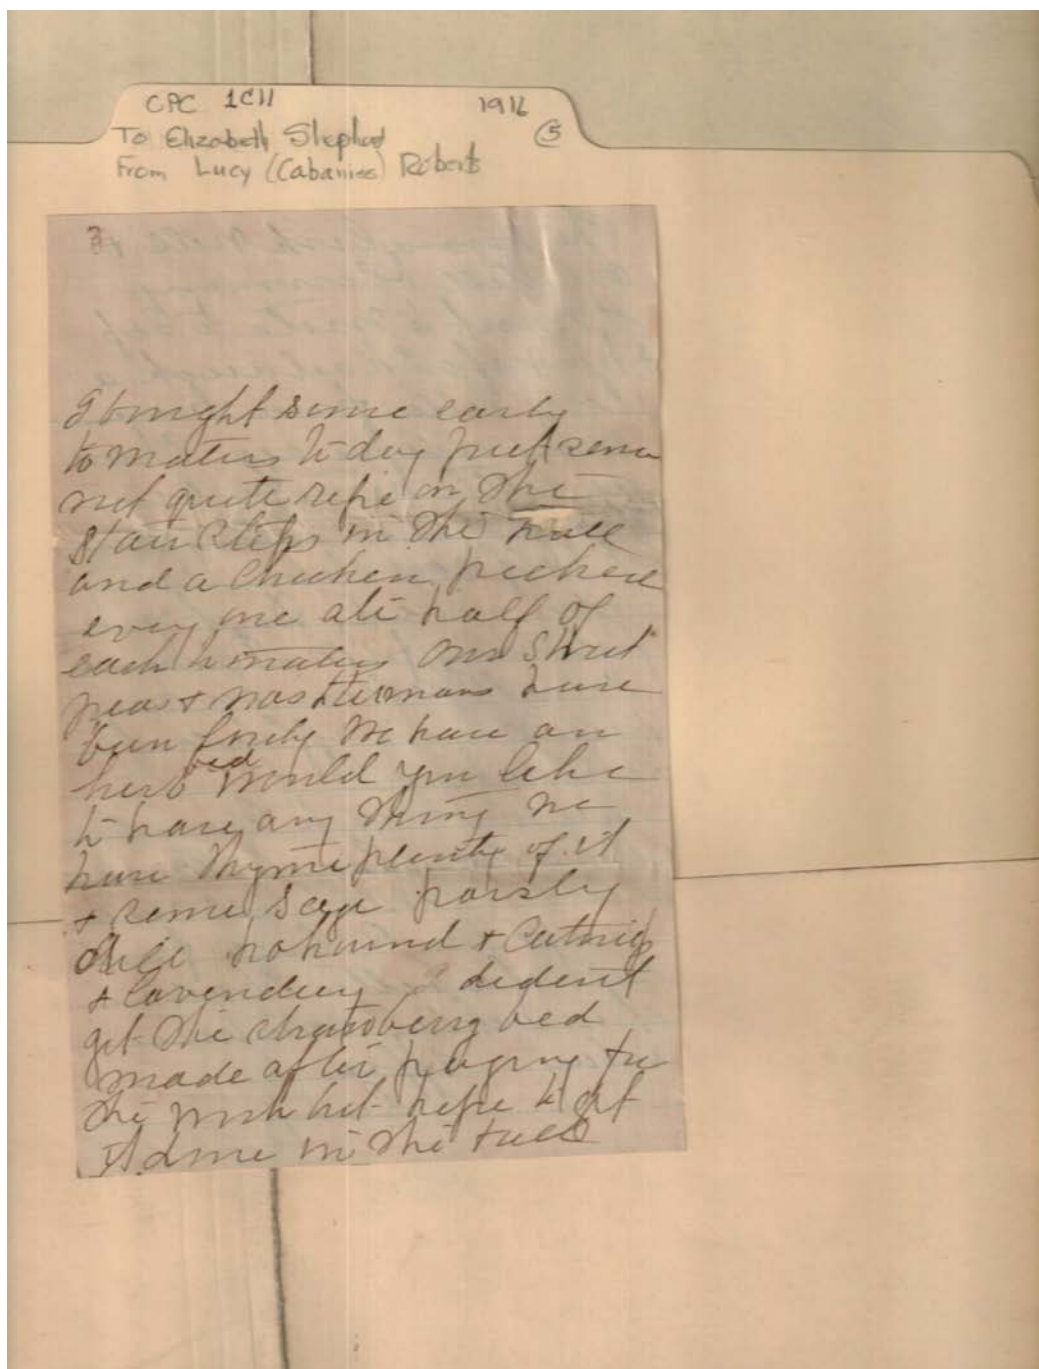 CPC 1C11 1916
To Elizabeth Shepherd ⑤
From Lucy (Cabaniss) Roberts
3
I bought some early
tomatoes to day put some
not quite ripe on the
stair steps in the hall
and a chicken picked
every one ate half of
each tomatoes Our Sweet
peas & nasturtians have
been lovely We have an
herb bed would you like
to have any thing we
have thyme plenty of it
& some sage parsly
dill hohound & Catnip
& lavendery I dident
get the strawberry bed
made after paying for
the work but hope to get
it done in the fall